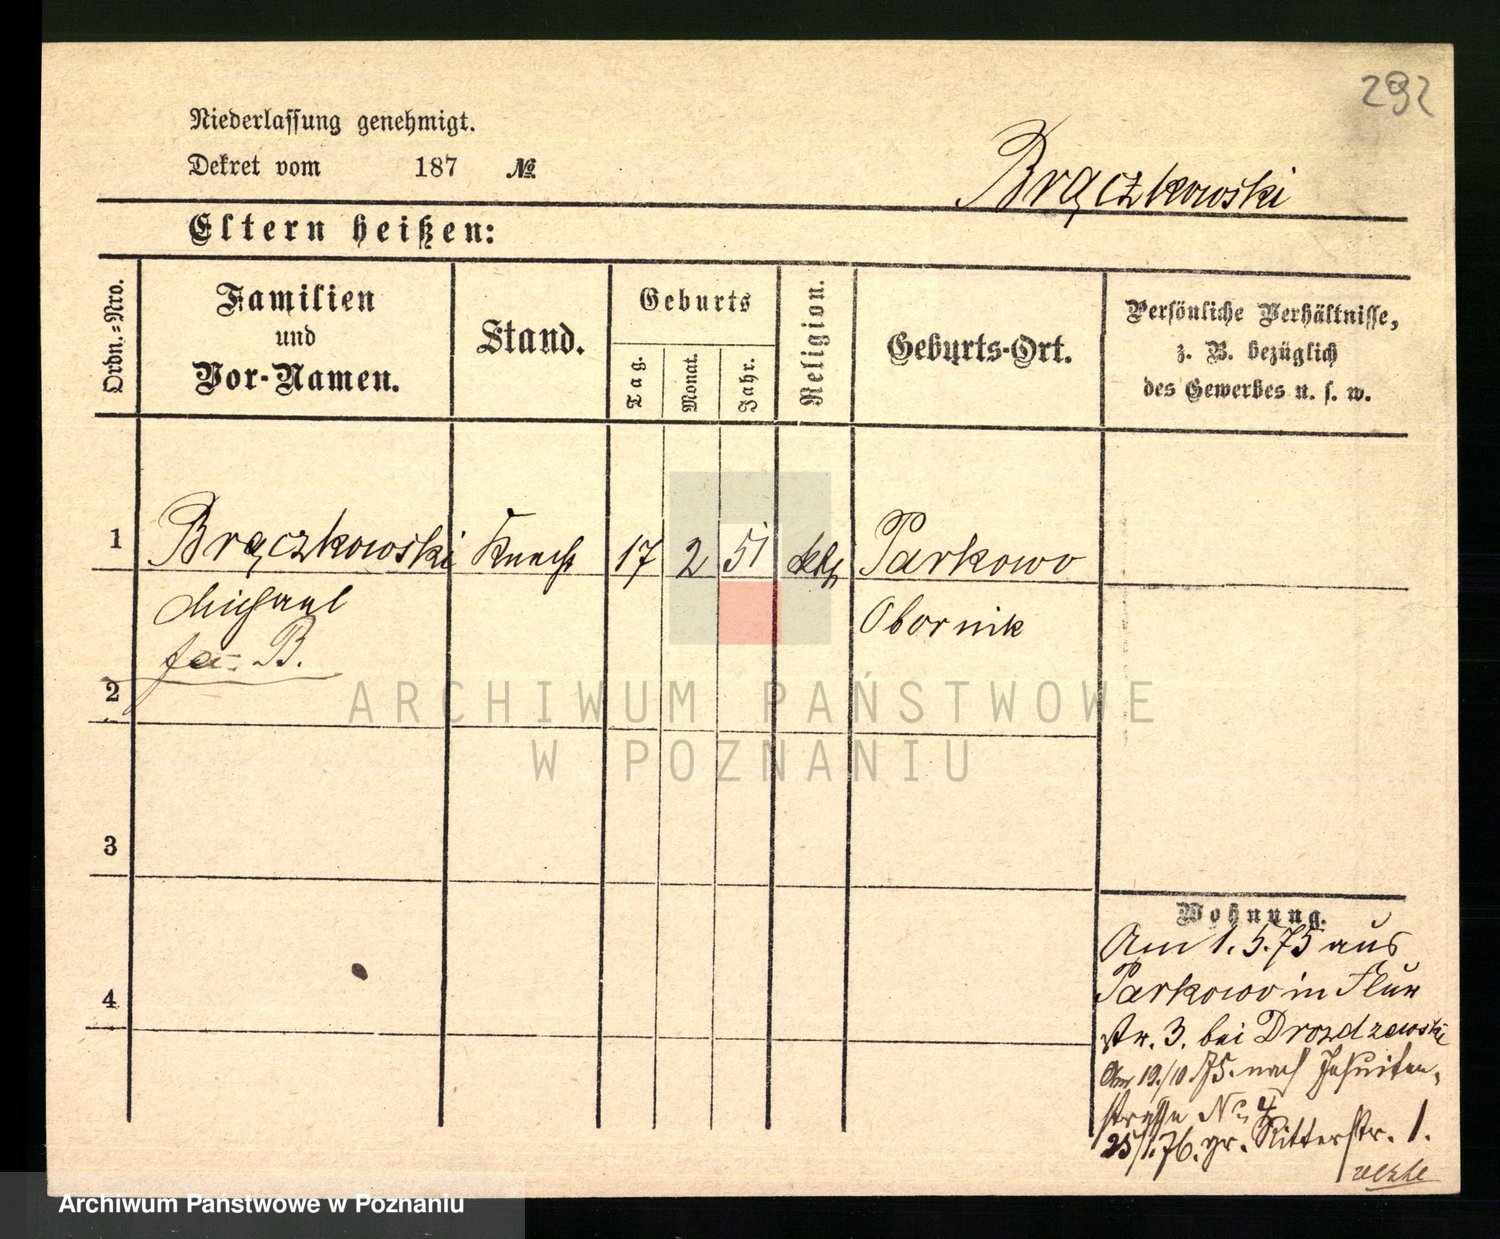 292
Niederlassung genehmigt.
Dekret vom 187 №
Brączkowski
Eltern heißen:
Ordn.-Nro.
Familien
und
Vor-Namen.
Stand.
Geburts
Tag.
Monat.
Jahr.
Religion.
Geburts-Ort.
Persönliche Verhältnisse,
z. B. bezüglich
des Gewerbes u. s. w.
1 Brączkowski Knecht 17 2 51 kth Parkowo
Michael Obornik
B.
2
3
4
Wohnung.
Am 1.5.75 aus
Parkowo in
str. 3. bei Drozdzewski
Am 19./10.75. nach Jesuiten-
strasse No 4
25/1.76. gr. Ritterstr. 1.
ARCHIWUM PAŃSTWOWE
W POZNANIU
Archiwum Państwowe w Poznaniu